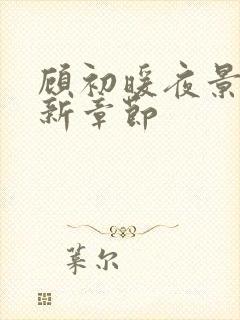 顾初暖夜景
新章节
叶尔